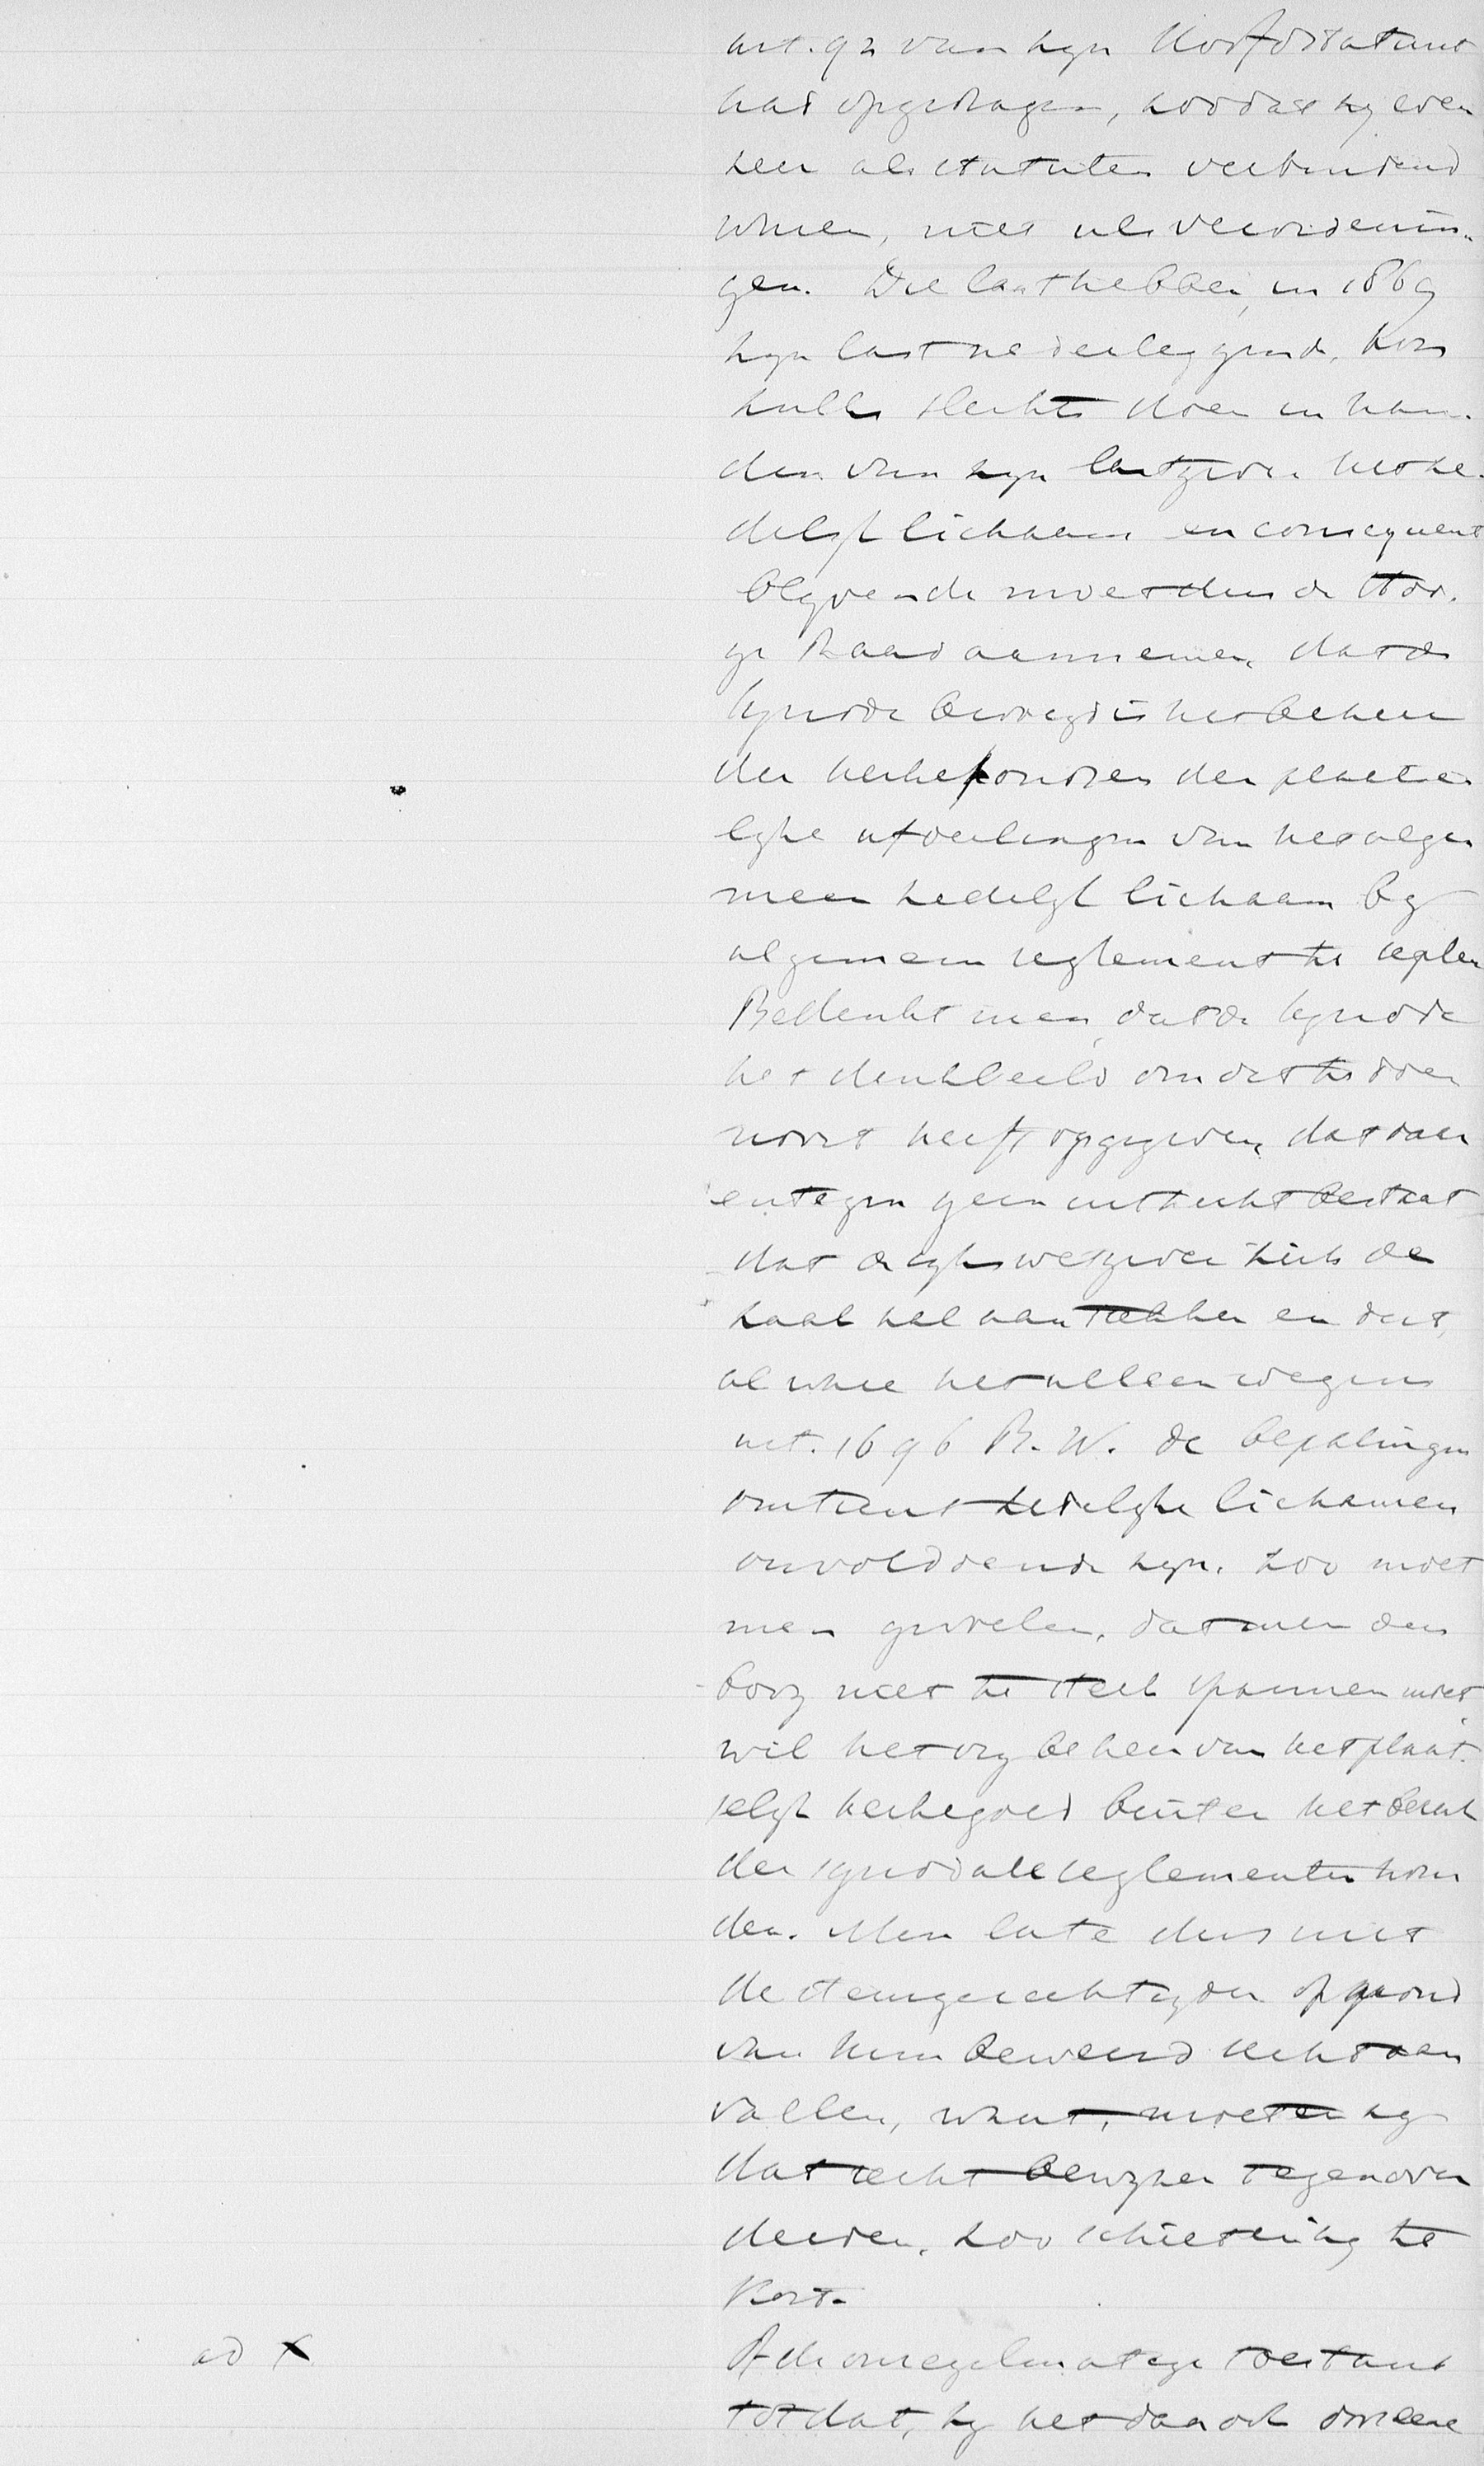 art. 92 van zyn Hoofdstatuut
had opgedragen, zoodat zy even
zeer als statuten verbindend
waren, niet als verordenin-
gen. Die lasthebber, in 1869
zyn last nederleggende, kon
zulks slechts doen in han-
den van zyn lastgever het ze-
delyk lichaam en consequent
blyvende moet dus de Hoo-
ge Raad aannemen, dat de
Synode bevoegd is het beheer
der kerkefondsen der plaatse
lyke afdeelingen van het alge
meen zedelyk lichaam by
algemeen reglement te regelen
Bedenkt men, dat de Synode
het denkbeeld om dat te doen
nooit heeft opgegeven, dat daar
entegen geen uitzicht bestaat
dat de ryks wetgever zich de
zaak zal aantrekken en dat,
al ware het alleen wegens
art. 1696 B.W. de bepalingen
omtrent zedelyke lichamen
onvoldoende zyn, zoo moet
men gevoelen, dat men den
boog niet te sterk spannen moet
wil het vry beheer van het plaat-
selyk kerkegoed buiten het bereik
der synodale reglementen hou
den. Men late dus niet
de stemgerechtigden op grond
van hun beweerd recht aan
vallen, want, moeten zy
dat recht bewyzen tegenover
derden, zoo schieten zy te
kort.
ad X Of de onregelmatige toestand
totdat, zy het dan ook door eene